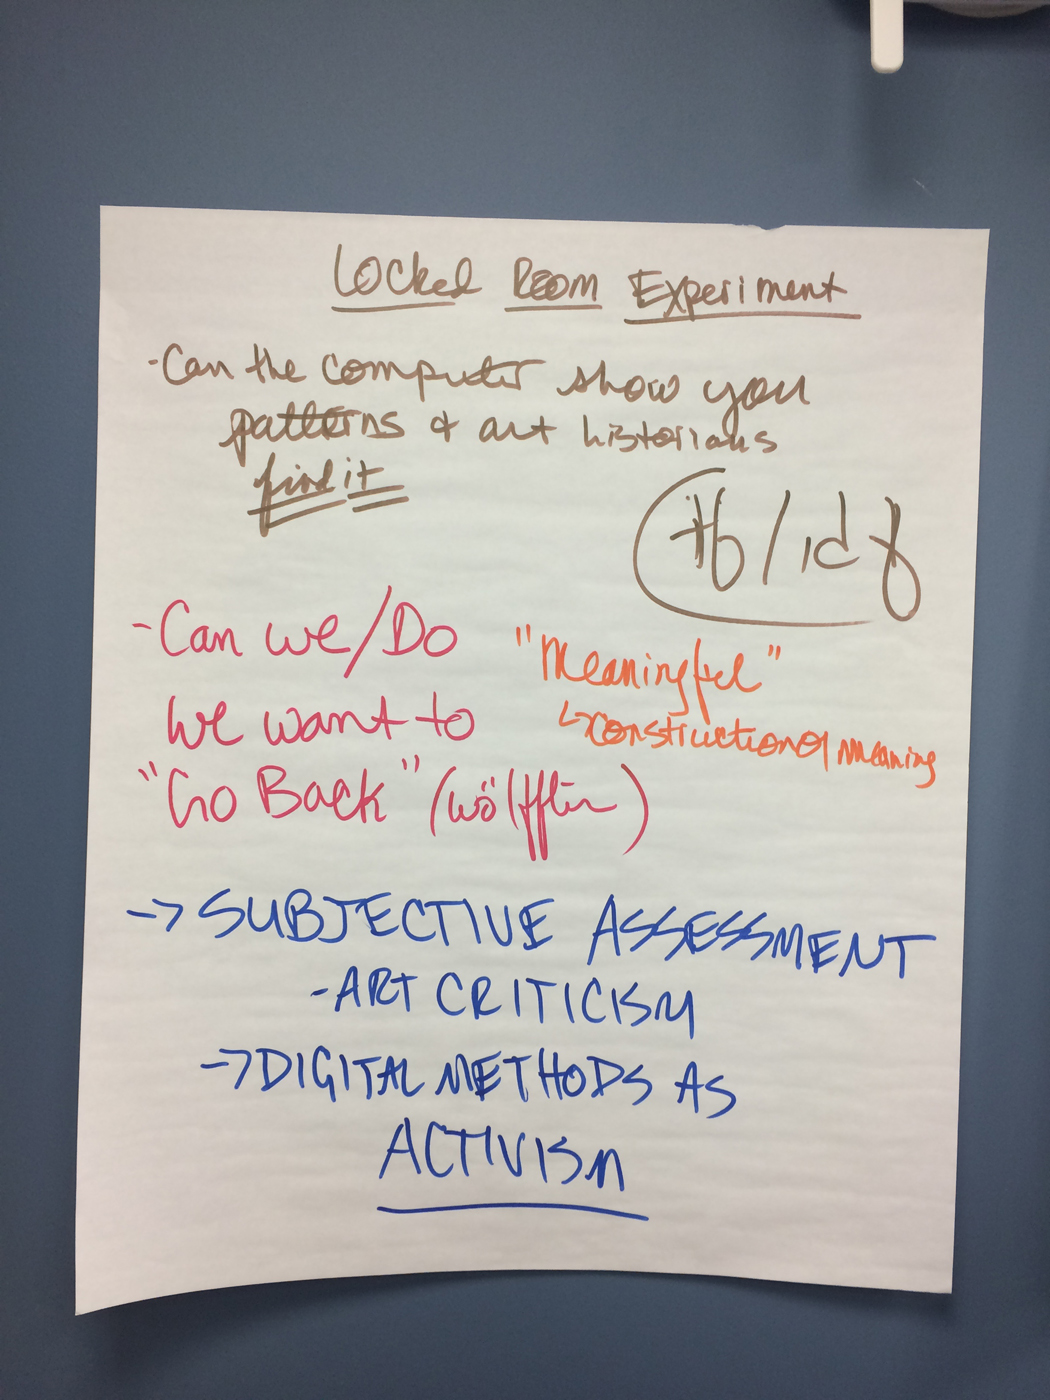 Locked Room Experiment
- Can the computer show you
patterns & art historians
find it
tf/idf
- Can we/Do
we want to
"Go Back" (Wölfflin)
"Meaningful"
↳ construction of meaning
→ SUBJECTIVE ASSESSMENT
- ART CRITICISM
→ DIGITAL METHODS AS
ACTIVISM